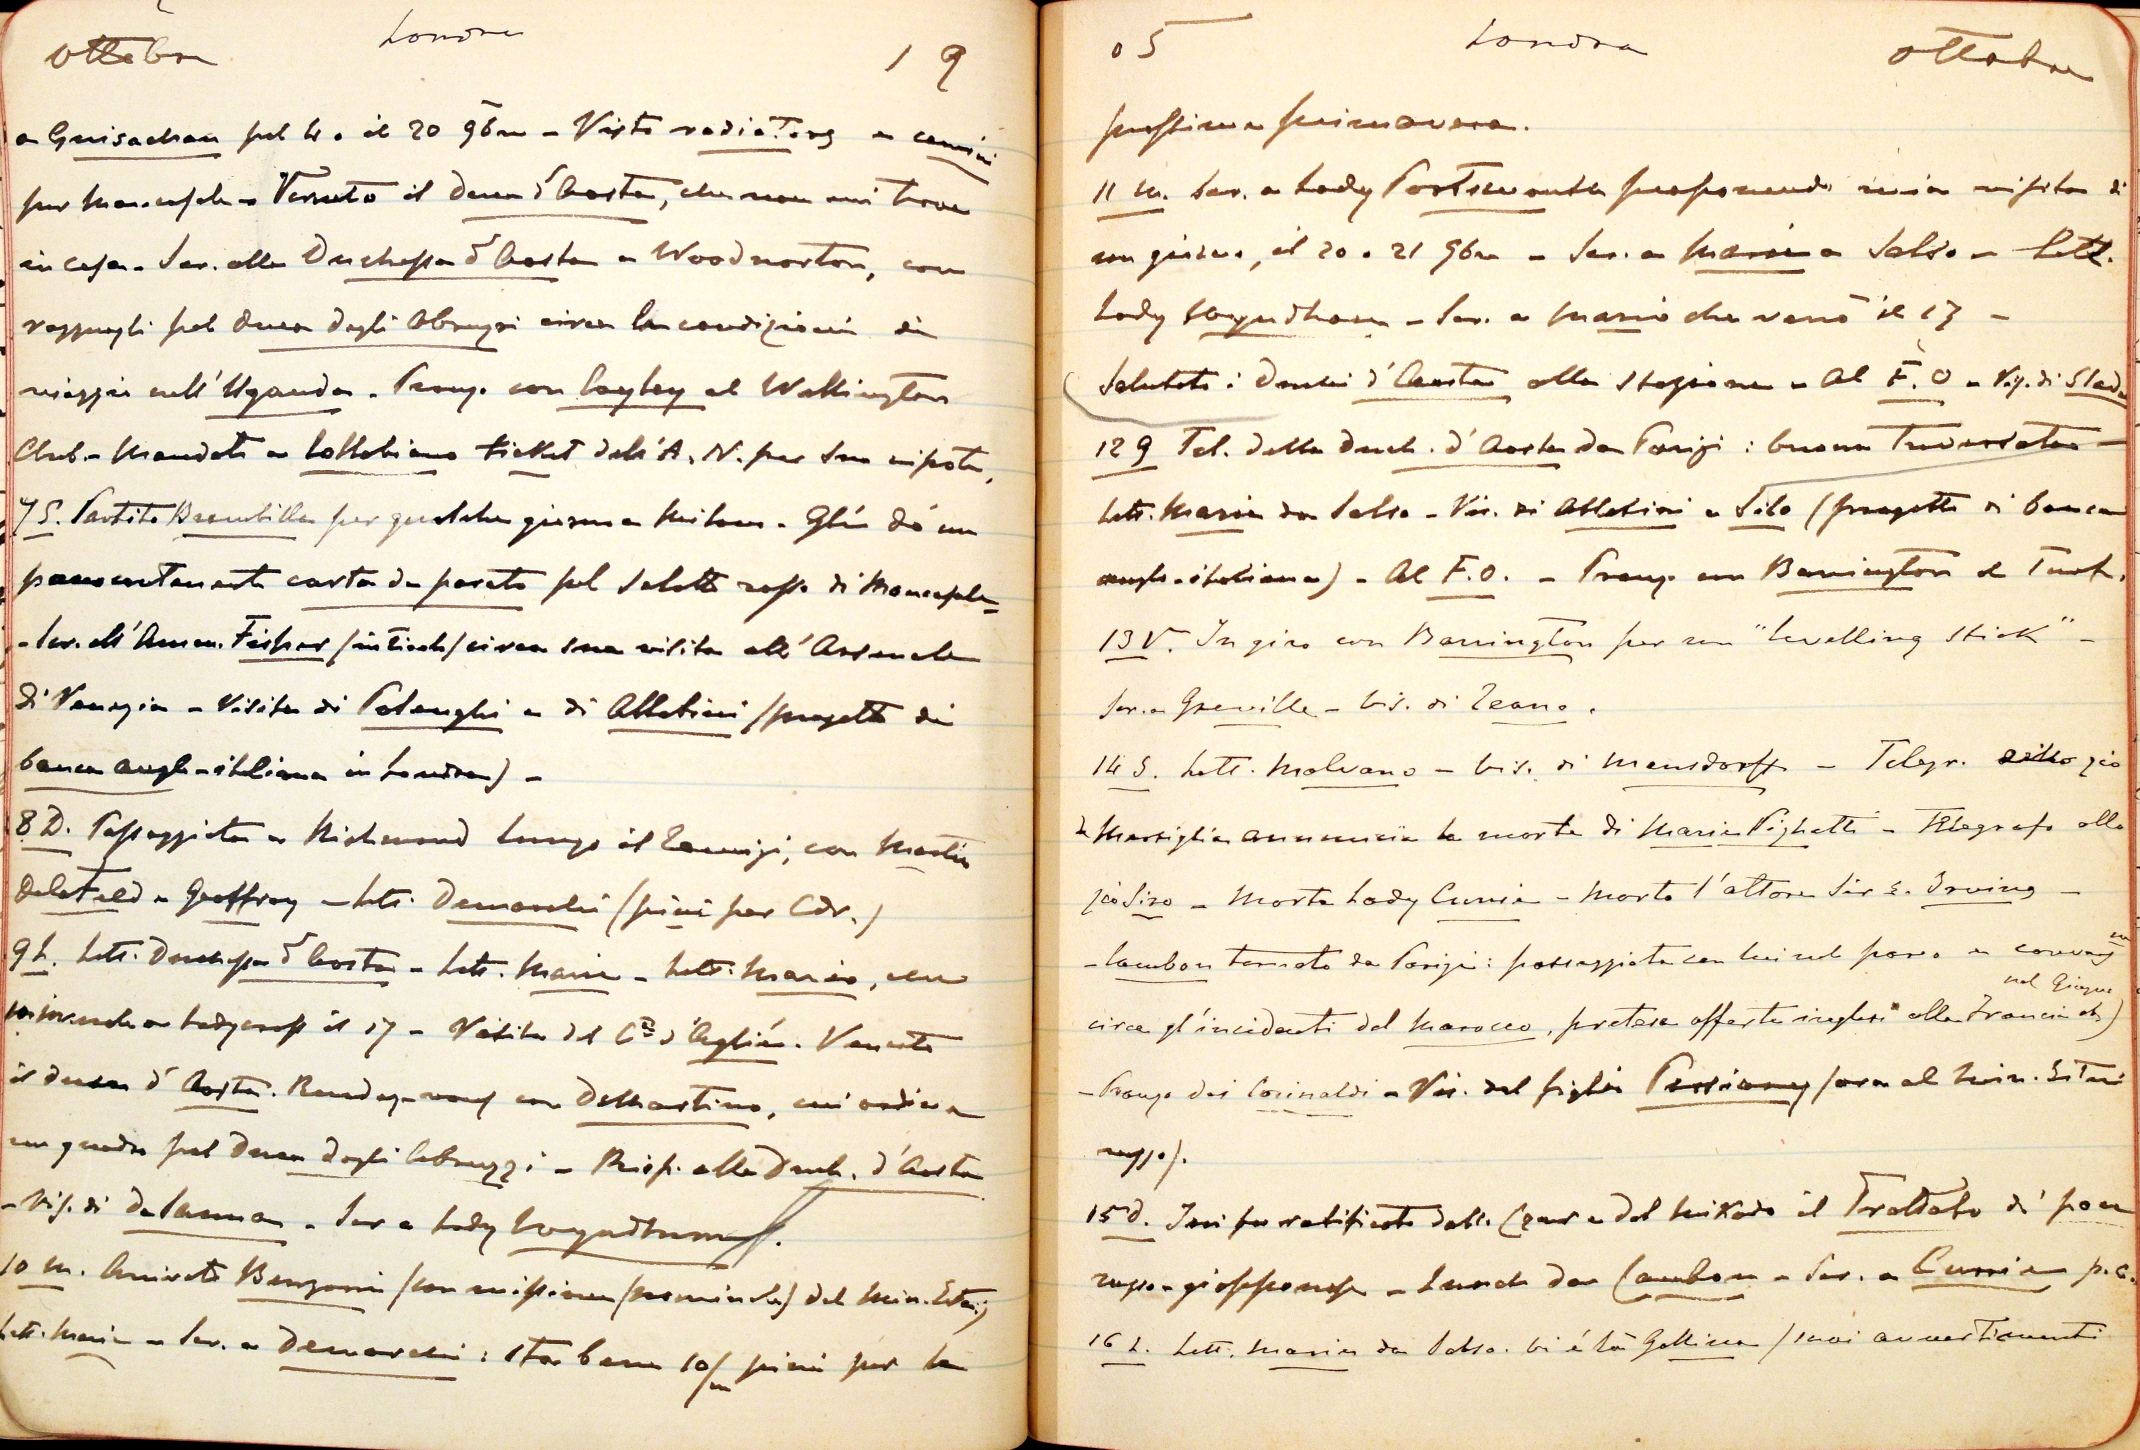 Ottobre Londra 19
a Guisachan pel 4 o il 20 9bre - Visto radiators e camini
per Moncapile - Venuto il Duca d'Aosta, che non mi trova
in casa. Scr. alla Duchessa d'Aosta a Woodnorton, con
ragguagli pel Duca degli Abruzzi circa le condizioni di
viaggio nell'Uganda. Pranzo con al Wellington
Club - Mandato a ticket dell'A. N. per suo nipote.
7 S. Partito Brambilla per qualche giorno a Milano - Gli dò un
pacco contenente carta da parato pel salotto rosso di
- Scr. all'Amm. Fisher circa sua visita all'Arsenale
di Venezia - Visita di Polenghi e di Allatini (progetto di
banca anglo-italiana in Londra) -
8 D. Passeggiata a Richmond lungo il Tamigi, con
Delafeld e Geoffroy - Lett. Demarchi (pini per Cdr.)
9 L. Lett. Duchessa d'Aosta - Lett. Maria - Lett. Mario, che
il 17 - Visita del Cte d'Aglié. Venuto
il duca d'Aosta. Rendez-vous con DeMartino, cui ordina
un quadro pel Duca degli Abruzzi - Risp. alla Duch. d'Aosta
- Vis. di - Scr a Lady Wyndham.
10 M. Arrivato Benzoni (con missione (nominale) del Min. Esteri)
Lett. Maria - Scr. a Demarchi: sta bene 10/m pini per la
05 Londra Ottobre
prossima primavera.
11 M. Scr. a Lady Portsmouth proponendo mia visita di
un giorno, il 20 o 21 9bre - Scr. a Maria a Salso - Lett.
Lady Wyndham - Scr. a Mario che verrò il 17 -
Salutati i Duchi d'Aosta alla stazione - Al F.O - Vis. di
12 G Tel. della Duch. d'Aosta da Parigi: buona traversata -
Lett. Maria da Salso - Vis. di Allatini e (progetto di banca
anglo-italiana) - Al F.O. - Pranzo con Barrington al Turf.
13 V. In giro con Barrington per un "Levelling Stick" -
Scr. a Greville - Vis. di Teano.
14 S. Lett. Malvano - Vis. di Mensdorff - Telegr. zio
da Marsiglia annuncia la morte di Maria Vighetti - Telegrafo allo
zio Siro - Morta Lady Currie - Morto l'attore Sir E. Irving -
- Cambon tornato da Parigi: passeggiata con lui nel parco
circa gl'incidenti del Marocco, pretese offerte inglesi alla Francia nel Giugno
- Pranzo dei Corinaldi - Vis. del figlio Pessiany (ora al Min. Esteri
russo).
15 D. Ieri fu ratificato dallo Czar e dal Mikado il Trattato di pace
russo-giapponese - Lunch da Cambon - Scr. a Currie p.c.
16 L. Lett. Maria da Salso. Vi é là Gallina (suoi avvertimenti